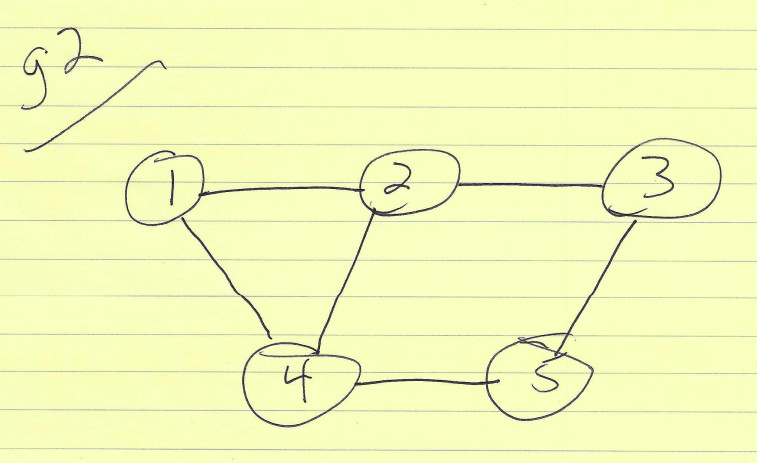 g2
1 2 3
4 5